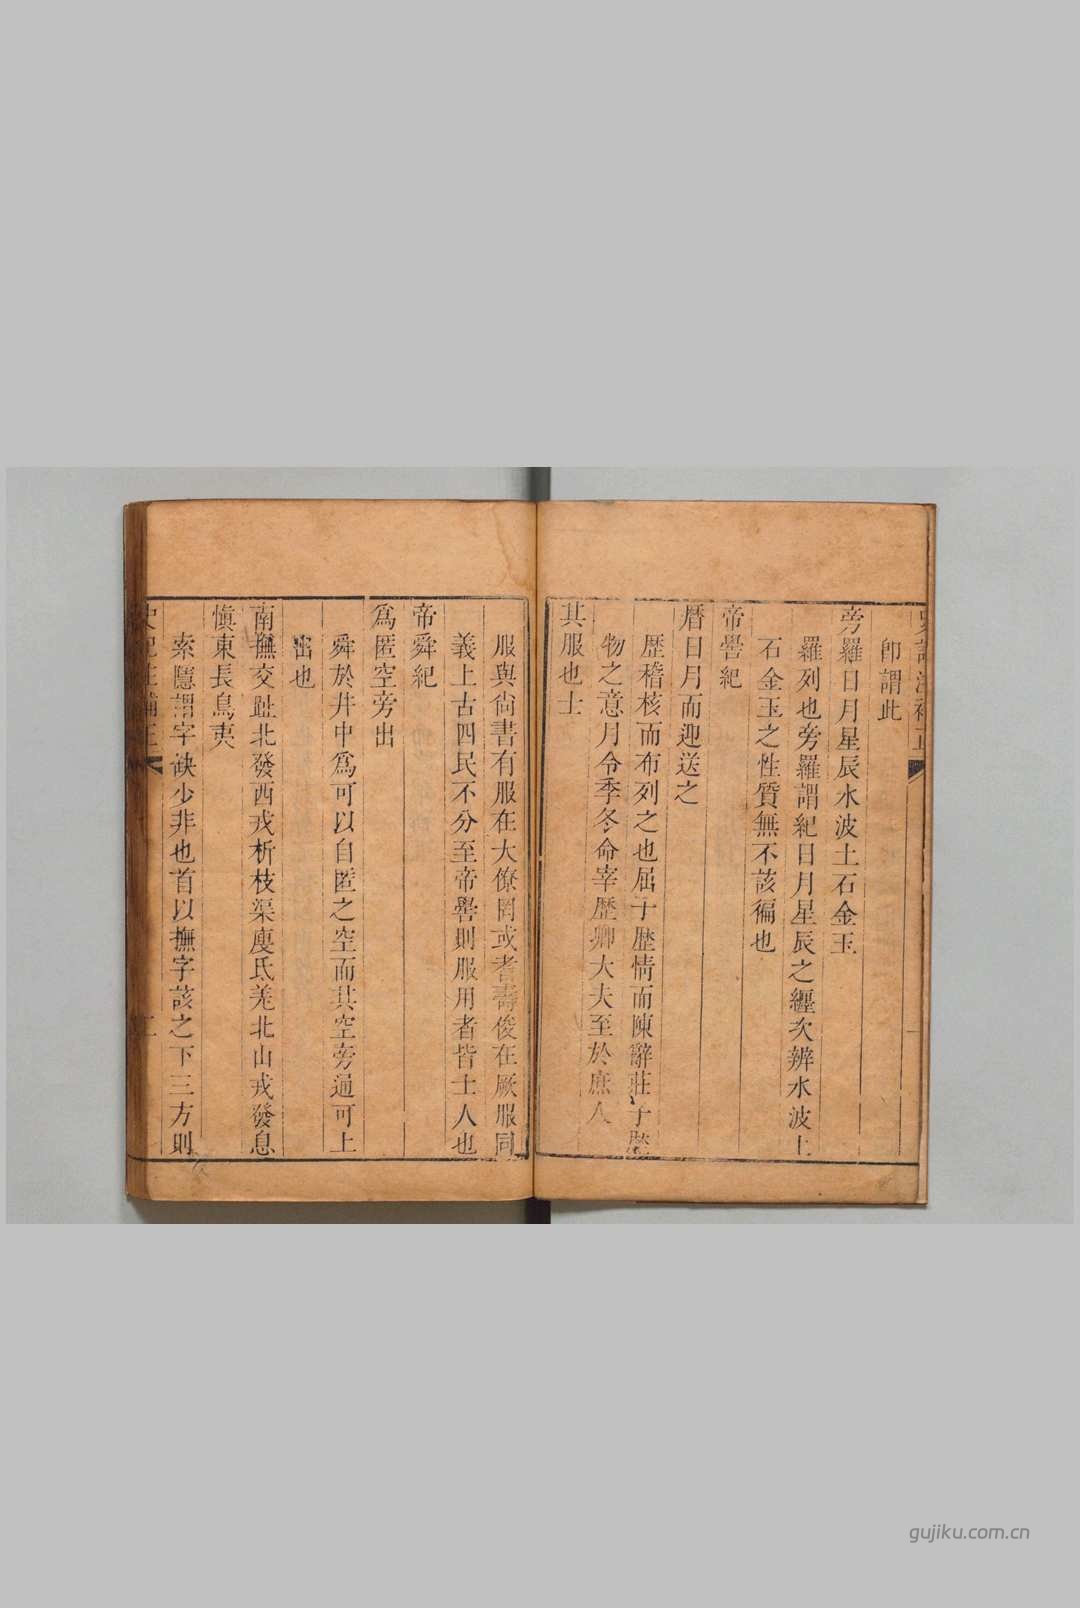 史記注補正
卽謂此
旁羅日月星辰水波土石金玉
羅列也旁羅謂紀日月星辰之纏次辨水波土
石金玉之性質無不該徧也
帝嚳紀
曆日月而迎送之
歷稽核而布列之也屈子歷情而陳辭莊子歷
物之意月令季冬命宰歷卿大夫至於庶人
其服也士
服與尙書有服在大僚罔或耆壽俊在厥服同
義上古四民不分至帝嚳則服用者皆士人也
帝舜紀
爲匿空旁出
舜於井中爲可以自匿之空而其空旁通可上
出也
南撫交趾北發西戎析枝渠廋氐羌北山戎發息
愼東長鳥夷
索隱謂字缺少非也首以撫字該之下三方則
史記注補正
二
gujiku.com.cn